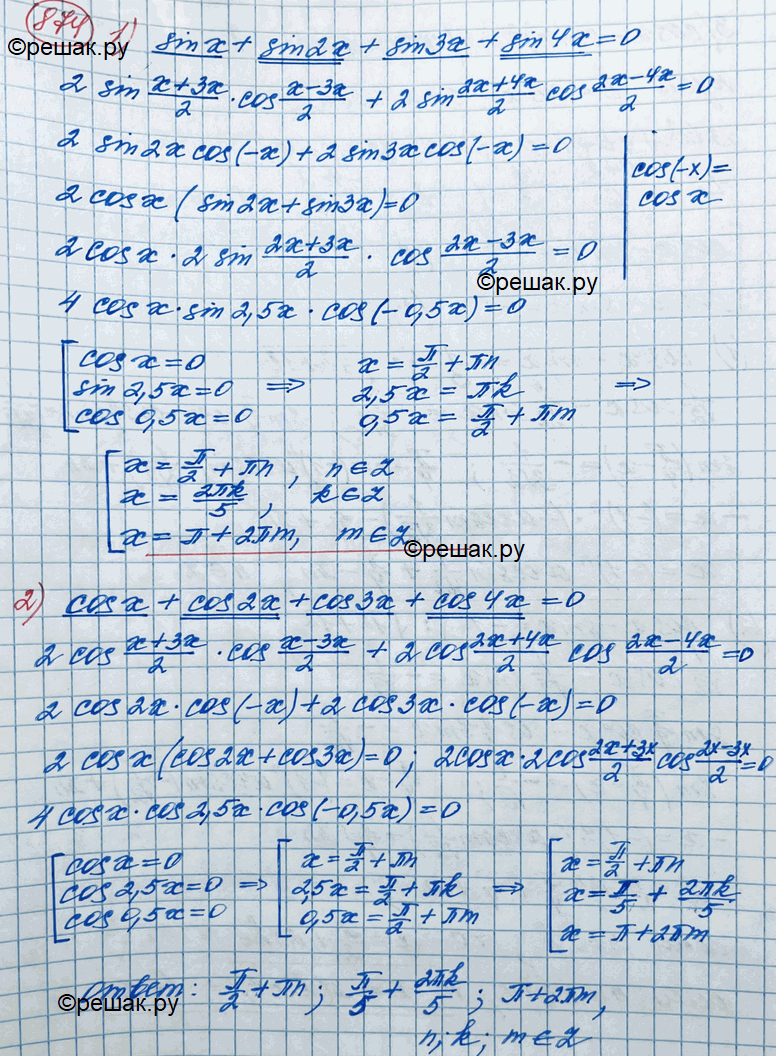 874 1) sin x + sin 2x + sin 3x + sin 4x = 0
©решак.ру
2 sin (x+3x)/2 · cos (x−3x)/2 + 2 sin (2x+4x)/2 cos (2x−4x)/2 = 0
2 sin 2x cos(−x) + 2 sin 3x cos(−x) = 0
cos(−x) =
cos x
2 cos x (sin 2x + sin 3x) = 0
2 cos x · 2 sin (2x+3x)/2 · cos (2x−3x)/2 = 0
©решак.ру
4 cos x · sin 2,5x · cos(−0,5x) = 0
[ cos x = 0 x = π/2 + πn
sin 2,5x = 0 ⇒ 2,5x = πk ⇒
cos 0,5x = 0 0,5x = π/2 + πm
[ x = π/2 + πn, n ∈ Z
x = 2πk/5, k ∈ Z
x = π + 2πm, m ∈ Z
©решак.ру
2) cos x + cos 2x + cos 3x + cos 4x = 0
2 cos (x+3x)/2 · cos (x−3x)/2 + 2 cos (2x+4x)/2 cos (2x−4x)/2 = 0
2 cos 2x · cos(−x) + 2 cos 3x · cos(−x) = 0
2 cos x (cos 2x + cos 3x) = 0; 2 cos x · 2 cos (2x+3x)/2 cos (2x−3x)/2 = 0
4 cos x · cos 2,5x · cos(−0,5x) = 0
[ cos x = 0 [ x = π/2 + πn [ x = π/2 + πn
cos 2,5x = 0 ⇒ 2,5x = π/2 + πk ⇒ x = π/5 + 2πk/5
cos 0,5x = 0 0,5x = π/2 + πm x = π + 2πm
Ответ: π/2 + πn; π/5 + 2πk/5; π + 2πm,
©решак.ру
n; k; m ∈ Z